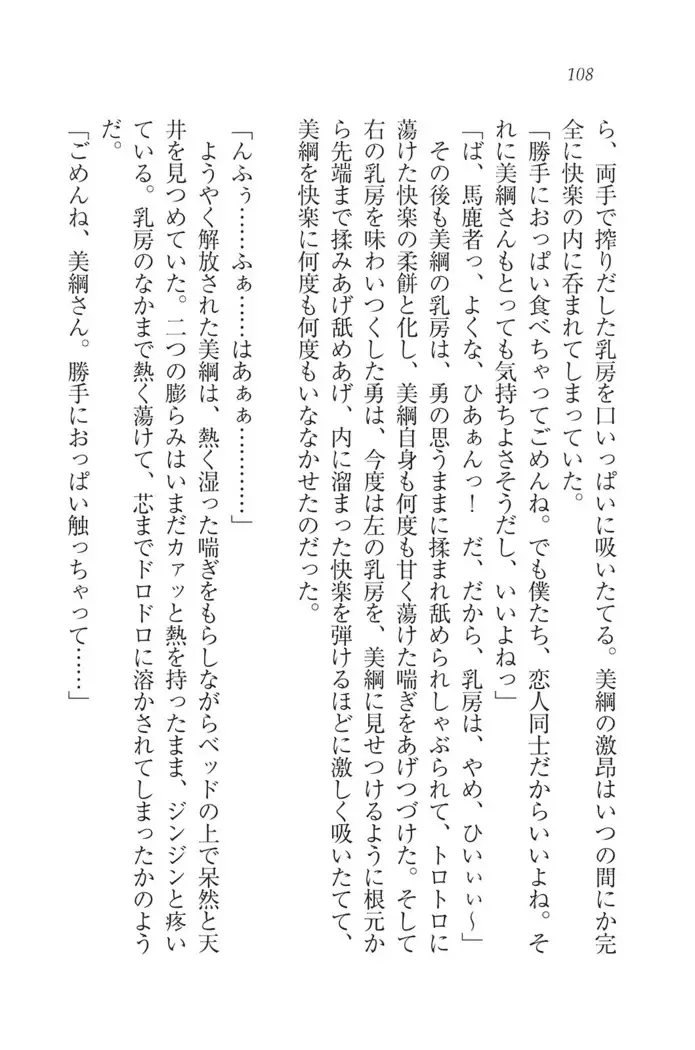 108
ら、両手で搾りだした乳房を口いっぱいに吸いたてる。美綱の激昂はいつの間にか完
全に快楽の内に呑まれてしまっていた。
「勝手におっぱい食べちゃってごめんね。でも僕たち、恋人同士だからいいよね。そ
れに美綱さんもとっても気持ちよさそうだし、いいよねっ」
「ば、馬鹿者っ、よくな、ひあぁんっ！　だ、だから、乳房は、やめ、ひいぃぃ〜」
　その後も美綱の乳房は、勇の思うままに揉まれ舐められしゃぶられて、トロトロに
蕩けた快楽の柔餅と化し、美綱自身も何度も甘く蕩けた喘ぎをあげつづけた。そして
右の乳房を味わいつくした勇は、今度は左の乳房を、美綱に見せつけるように根元か
ら先端まで揉みあげ舐めあげ、内に溜まった快楽を弾けるほどに激しく吸いたてて、
美綱を快楽に何度も何度もいななかせたのだった。
「んふぅ……ふぁ……はあぁぁ…………」
　ようやく解放された美綱は、熱く湿った喘ぎをもらしながらベッドの上で呆然と天
井を見つめていた。二つの膨らみはいまだカァッと熱を持ったまま、ジンジンと疼い
ている。乳房のなかまで熱く蕩けて、芯までドロドロに溶かされてしまったかのよう
だ。
「ごめんね、美綱さん。勝手におっぱい触っちゃって……」